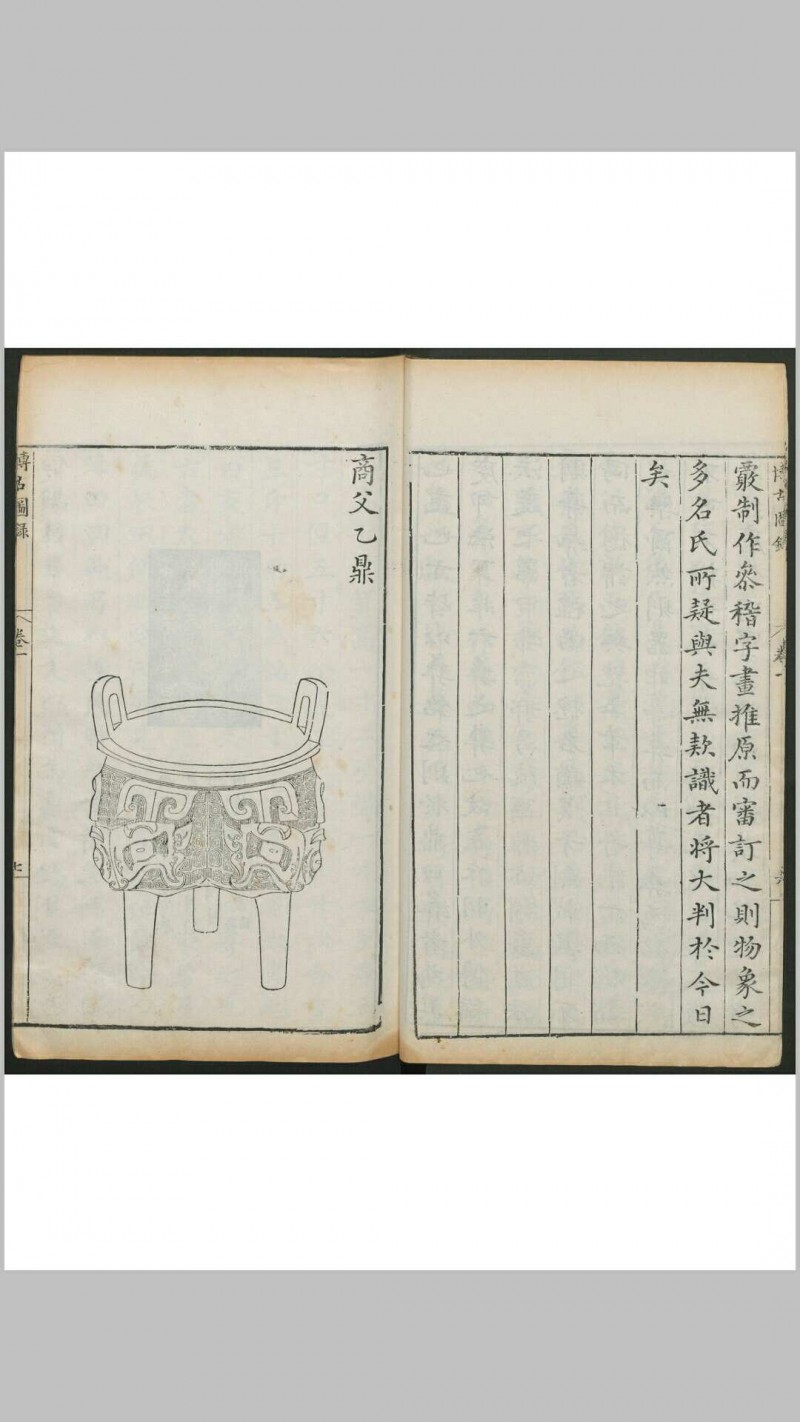 覈制作叅稽字畫推原而審訂之則物象之
多名氏所疑與夫無欵識者將大判於今日
矣
博古圖錄
卷一
商父乙鼎
博古圖錄
卷一
七